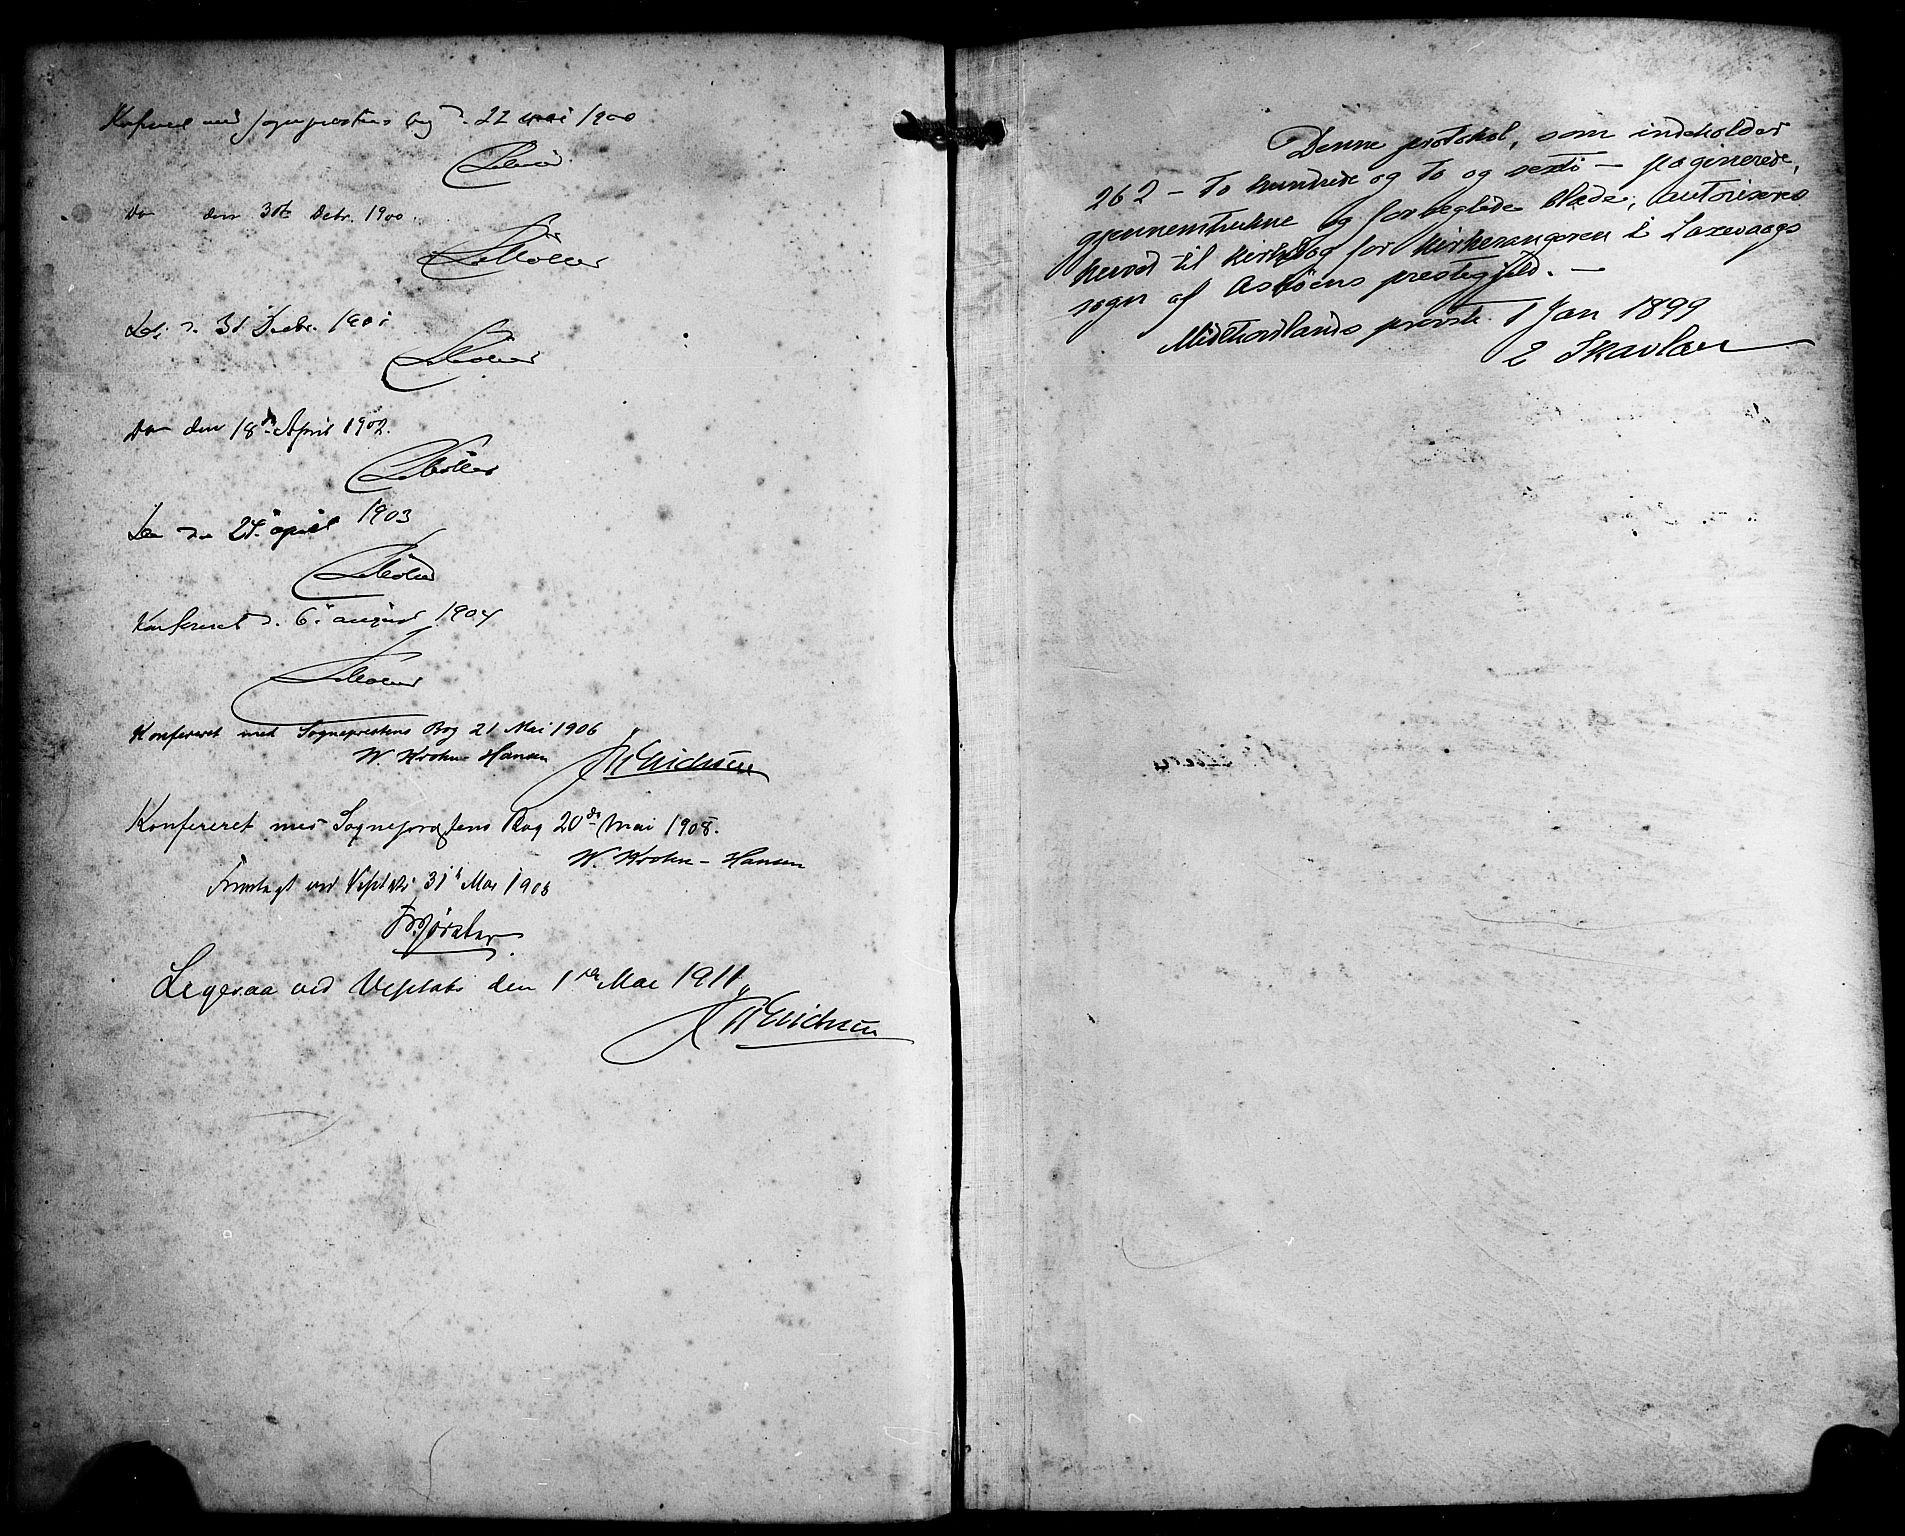 Konfereret med sognepræstens bog d. 22 mai 1900
Møller
Do den 31te Decbr. 1900.
Møller
Do d. 31 Decbr. 1901
Møller
Do den 18de April 1902.
Møller
Do den 24. april 1903
Møller
Konfereret d. 6. august 1904
Møller
Konfereret med Sogneprestens Bog 21 Mai 1906
W. Krohn-Hansen
Konfereret med Sogneprestens Bog 20de Mai 1908.
W. Krohn-Hansen
Fremlagt ved Visitats 31te Mai 1908
Ligesaa ved Visitats den 1ste Mai 1911
Denne protokol, som indeholder
262 - to hundrede og to og sexti - paginerede,
gjennemtrukne og forseglede blade, autoriseres
herved til kirkebog for kirkesangeren i Laxevaags
sogn af Askøens prestegjeld. -
Midthordlands provsti 1 Jan 1899
E Skavlan